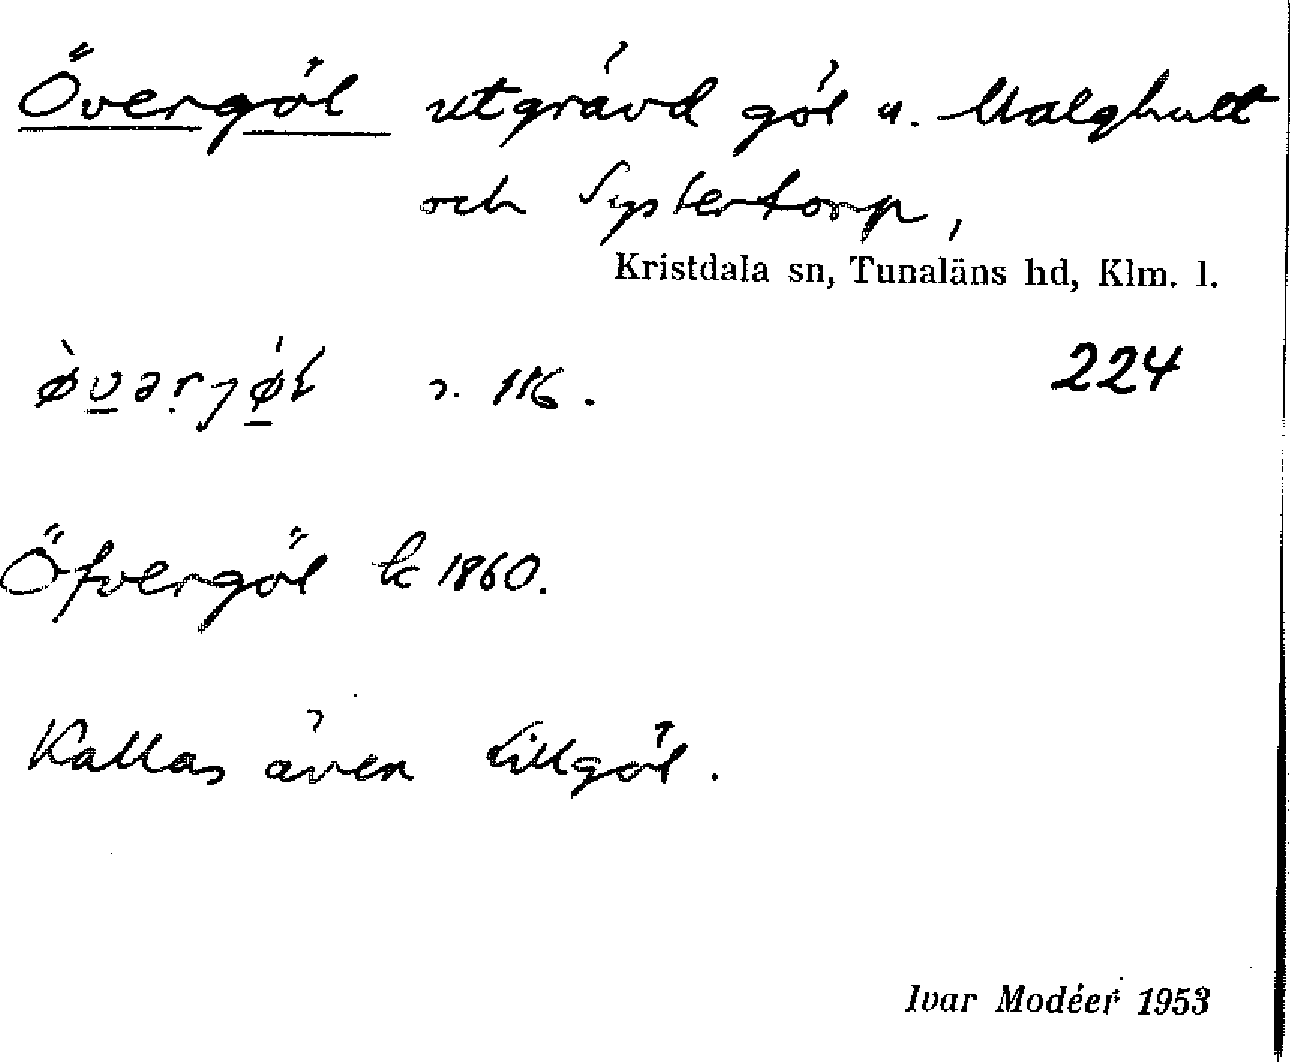 Övergöl utgrävd göl u. Malghult
och Systertorp,
Kristdala sn, Tunaläns hd, Klm. l.
224
Öfvergöl k 1860.
Kallas även Lillgöl.
Ivar Modéer 1953